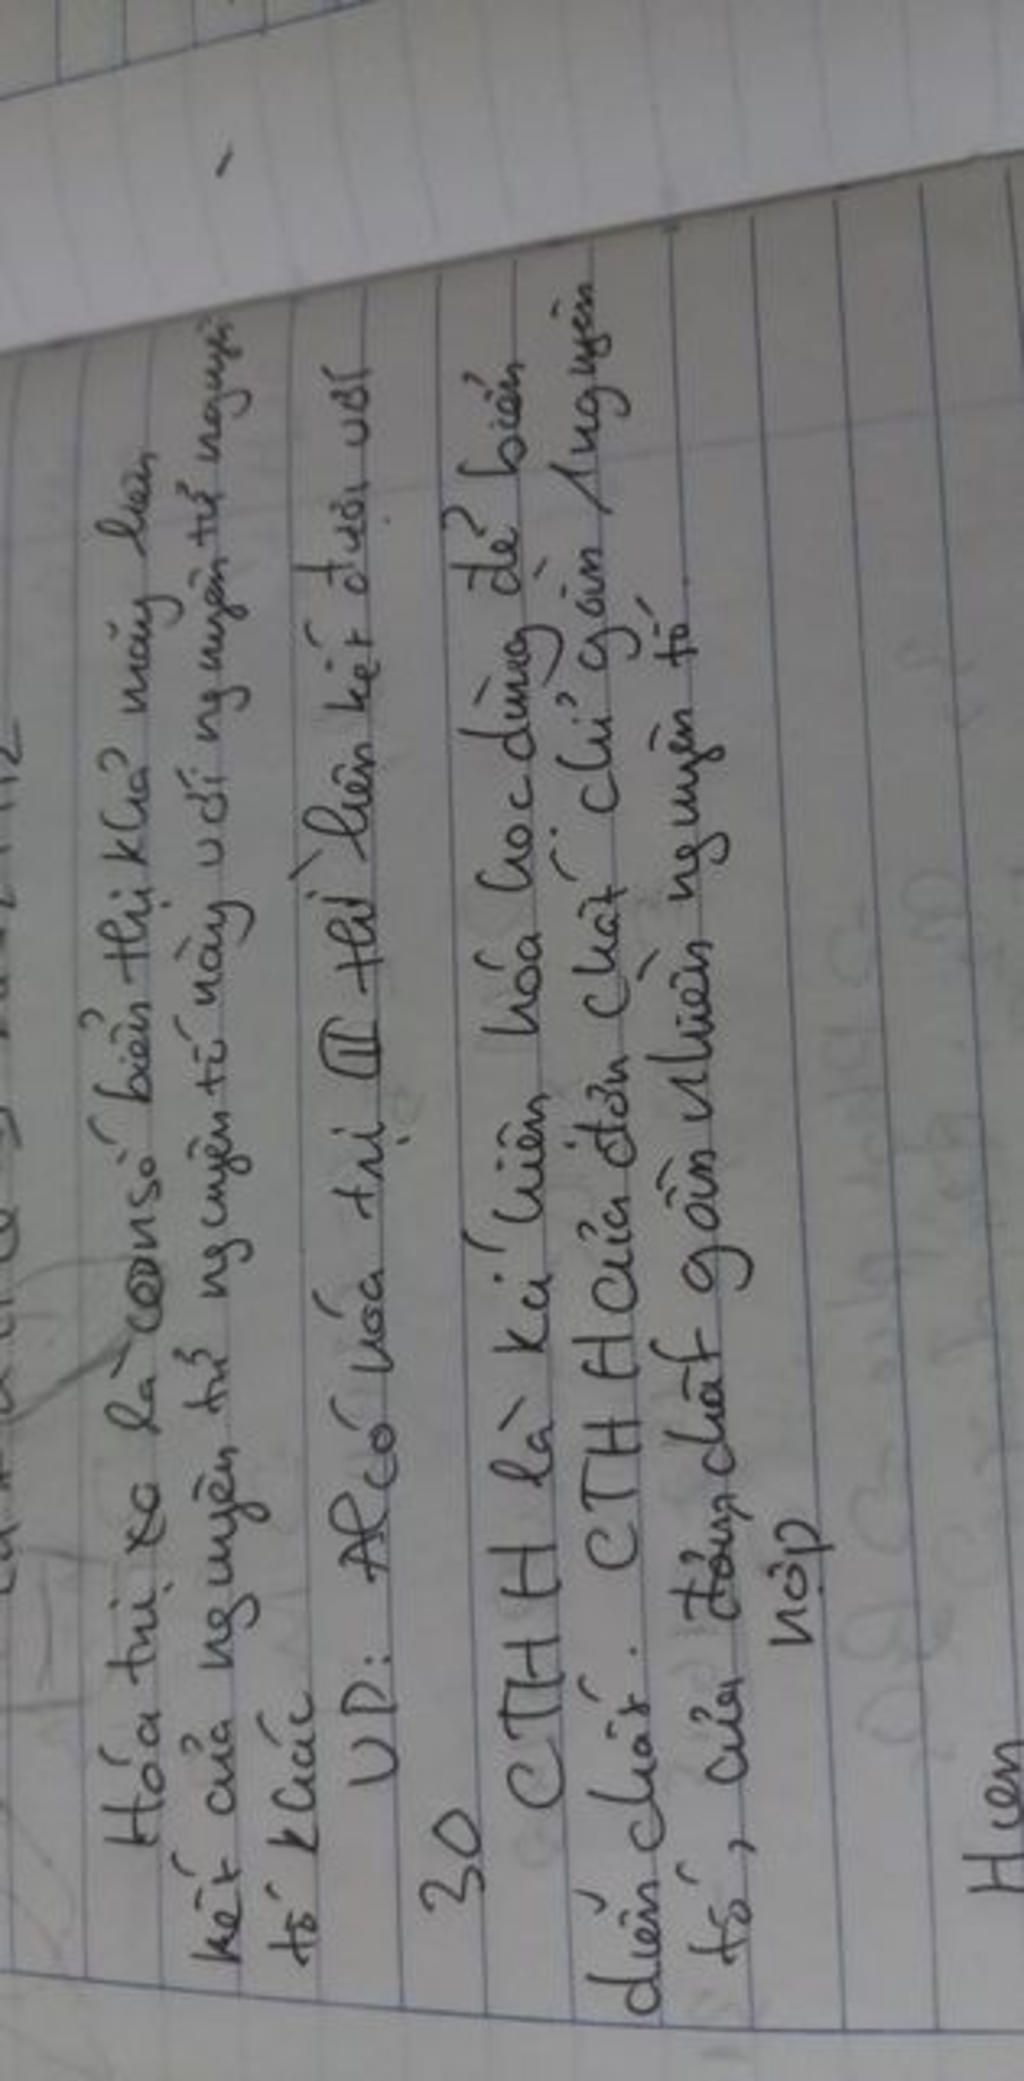 Hóa trị là con số biển thị khả năng liên
kết của nguyên tử nguyên tố này với nguyên tử nguyên
tố khác
VD: Al có hóa trị III thì liên kết được với
30
CTHH là kí hiên hóa học dùng để biển
diễn chất. CTHH của đơn chất chỉ gồm 1 nguyên
tố, của đơn chất gồm nhiên nguyên tố.
hợp
Hien